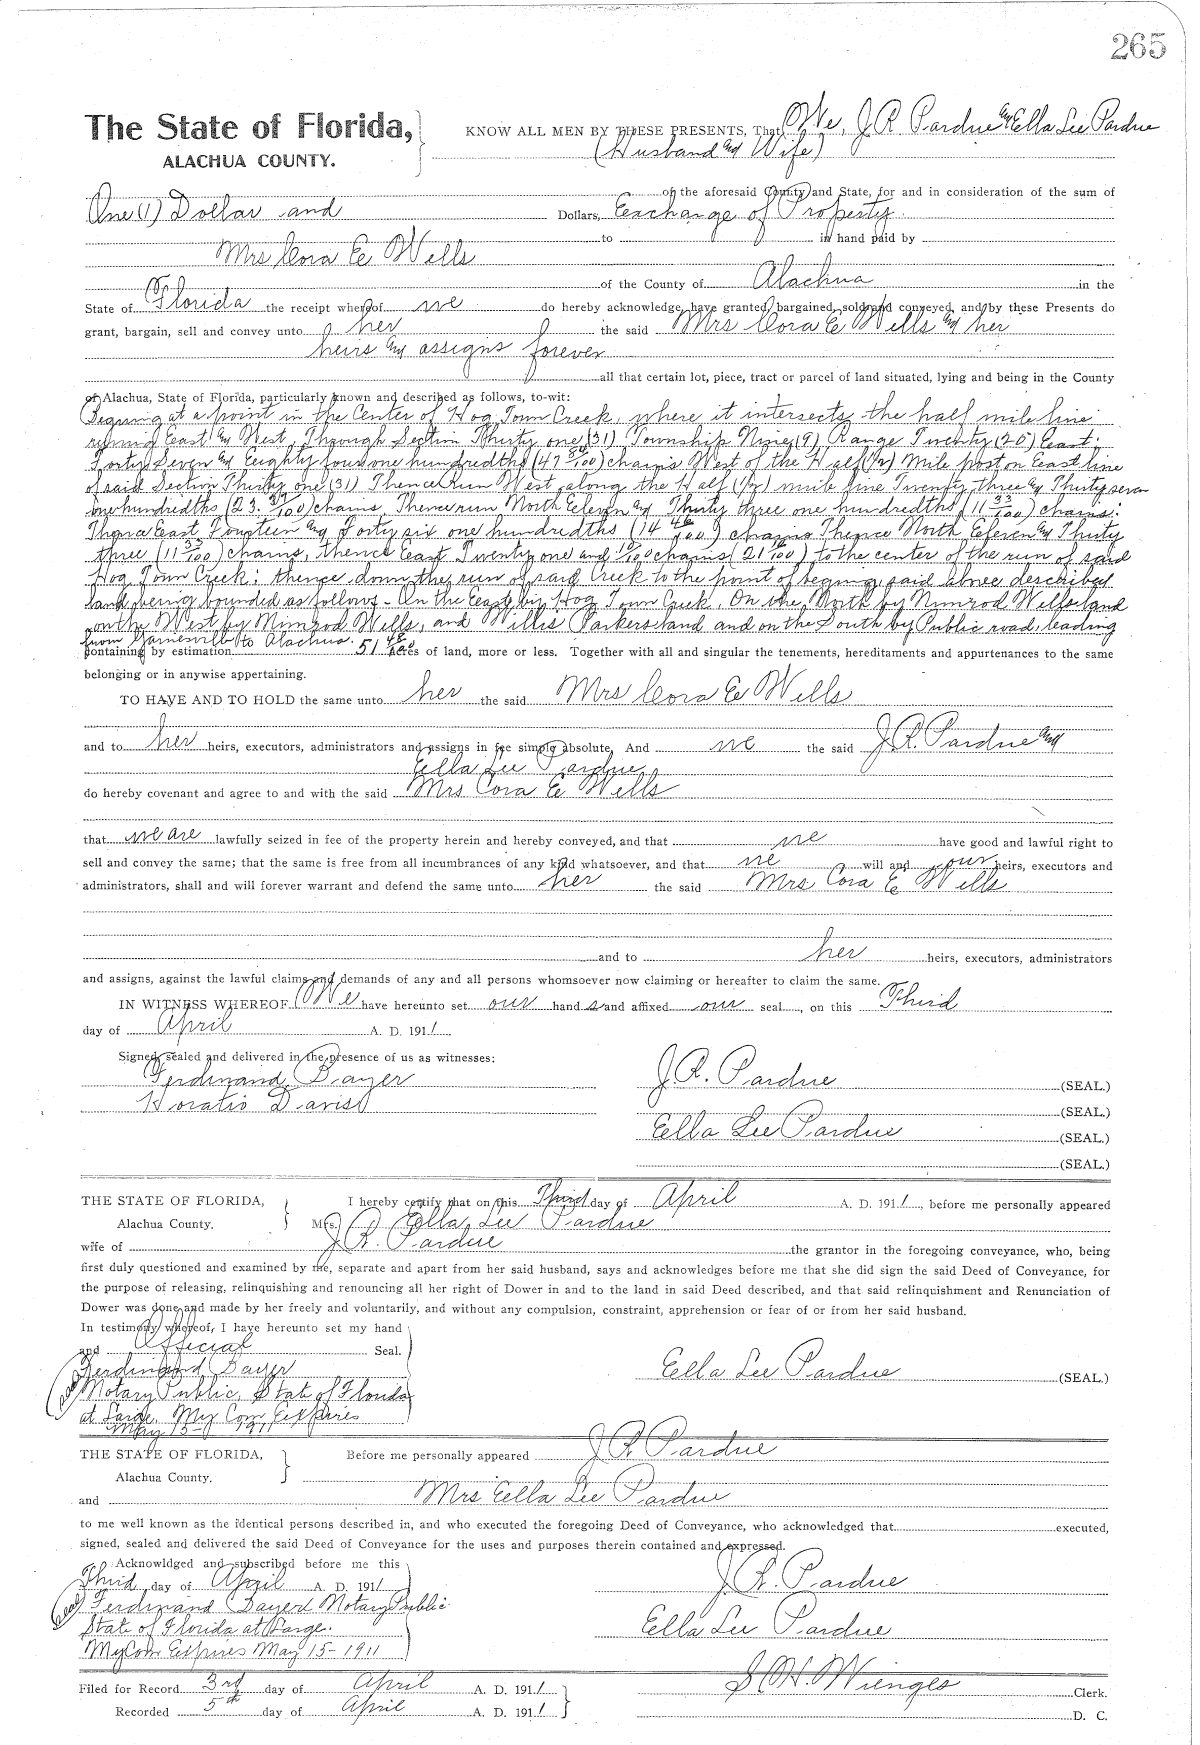 265
The State of Florida,
ALACHUA COUNTY.
KNOW ALL MEN BY THESE PRESENTS, That We, J R Pardue and Ella Lee Pardue
(Husband and Wife)
of the aforesaid County and State, for and in consideration of the sum of
One (1) Dollar and Dollars, Exchange of Property
to in hand paid by
Mrs Cora E Wells
of the County of Alachua in the
State of Florida the receipt whereof we do hereby acknowledge, have granted, bargained, sold and conveyed, and by these Presents do
grant, bargain, sell and convey unto her the said Mrs Cora E Wells and her
heirs and assigns forever
all that certain lot, piece, tract or parcel of land situated, lying and being in the County
of Alachua, State of Florida, particularly known and described as follows, to-wit:
Begining at a point in the Center of Hog Town Creek, where it intersects the half mile line
runing East and West, Through Section Thirty one (31) Township Nine (9) Range Twenty (20) East;
Forty Seven and Eighty four one hundredths (47 84/100) chains West of the Half (1/2) Mile post on East line
of said Section Thirty one (31) Thence Run West along the Half (1/2) mile line Twenty three and Thirty seven
one hundredths (23. 37/100) chains, Thence run North Eleven and Thirty three one hundredths (11 33/100) chains:
Thence East Fourteen and Forty six one hundredths (14 46/100) chains Thence North Eleven and Thirty
three (11 33/100) chains, thence East Twenty one and 16/100 chains (21 16/100) to the center of the run of said
Hog Town Creek: thence down the run of said Creek to the point of begining, said above described
land being bounded as follows - On the East by Hog Town Creek, On the North by Nimrod Wells land
on the West by Nimrod Wells, and Willis Parkers land and on the South by Public road, leading
from Gainesville to Alachua.
containing by estimation 51 48/100 acres of land, more or less. Together with all and singular the tenements, hereditaments and appurtenances to the same
belonging or in anywise appertaining.
TO HAVE AND TO HOLD the same unto her the said Mrs Cora E Wells
and to her heirs, executors, administrators and assigns in fee simple absolute, And we the said J. R. Pardue and
Ella Lee Pardue
do hereby covenant and agree to and with the said Mrs Cora E Wells
that we are lawfully seized in fee of the property herein and hereby conveyed, and that we have good and lawful right to
sell and convey the same; that the same is free from all incumbrances of any kind whatsoever, and that we will and our heirs, executors and
administrators, shall and will forever warrant and defend the same unto her the said Mrs Cora E Wells
and to her heirs, executors, administrators
and assigns, against the lawful claims and demands of any and all persons whomsoever now claiming or hereafter to claim the same.
IN WITNESS WHEREOF We have hereunto set our hand s and affixed our seal, on this Third
day of April A. D. 1911
Signed, sealed and delivered in the presence of us as witnesses:
Ferdinand Bayer
Horatio Davis
J. R. Pardue (SEAL.)
(SEAL.)
Ella Lee Pardue (SEAL.)
(SEAL.)
THE STATE OF FLORIDA,
Alachua County.
I hereby certify that on this Third day of April A. D. 1911, before me personally appeared
Mrs. Ella Lee Pardue
wife of J R. Pardue the grantor in the foregoing conveyance, who, being
first duly questioned and examined by me, separate and apart from her said husband, says and acknowledges before me that she did sign the said Deed of Conveyance, for
the purpose of releasing, relinquishing and renouncing all her right of Dower in and to the land in said Deed described, and that said relinquishment and Renunciation of
Dower was done and made by her freely and voluntarily, and without any compulsion, constraint, apprehension or fear of or from her said husband.
In testimony whereof, I have hereunto set my hand
and Official Seal.
Ferdinand Bayer
Seal
Notary Public, State of Florida
at Large. My Com Expires
May 15- 1911
Ella Lee Pardue (SEAL.)
THE STATE OF FLORIDA,
Alachua County.
Before me personally appeared J R Pardue
and Mrs Ella Lee Pardue
to me well known as the identical persons described in, and who executed the foregoing Deed of Conveyance, who acknowledged that executed,
signed, sealed and delivered the said Deed of Conveyance for the uses and purposes therein contained and expressed.
Acknowldged and subscribed before me this
Third day of April A. D. 1911
Seal
Ferdinand Bayer Notary Public
State of Florida at Large.
My Com Expires May 15- 1911
J. R. Pardue
Ella Lee Pardue
Filed for Record 3rd day of April A. D. 1911
Recorded 5th day of April A. D. 1911
S. H. Wienges Clerk.
D. C.